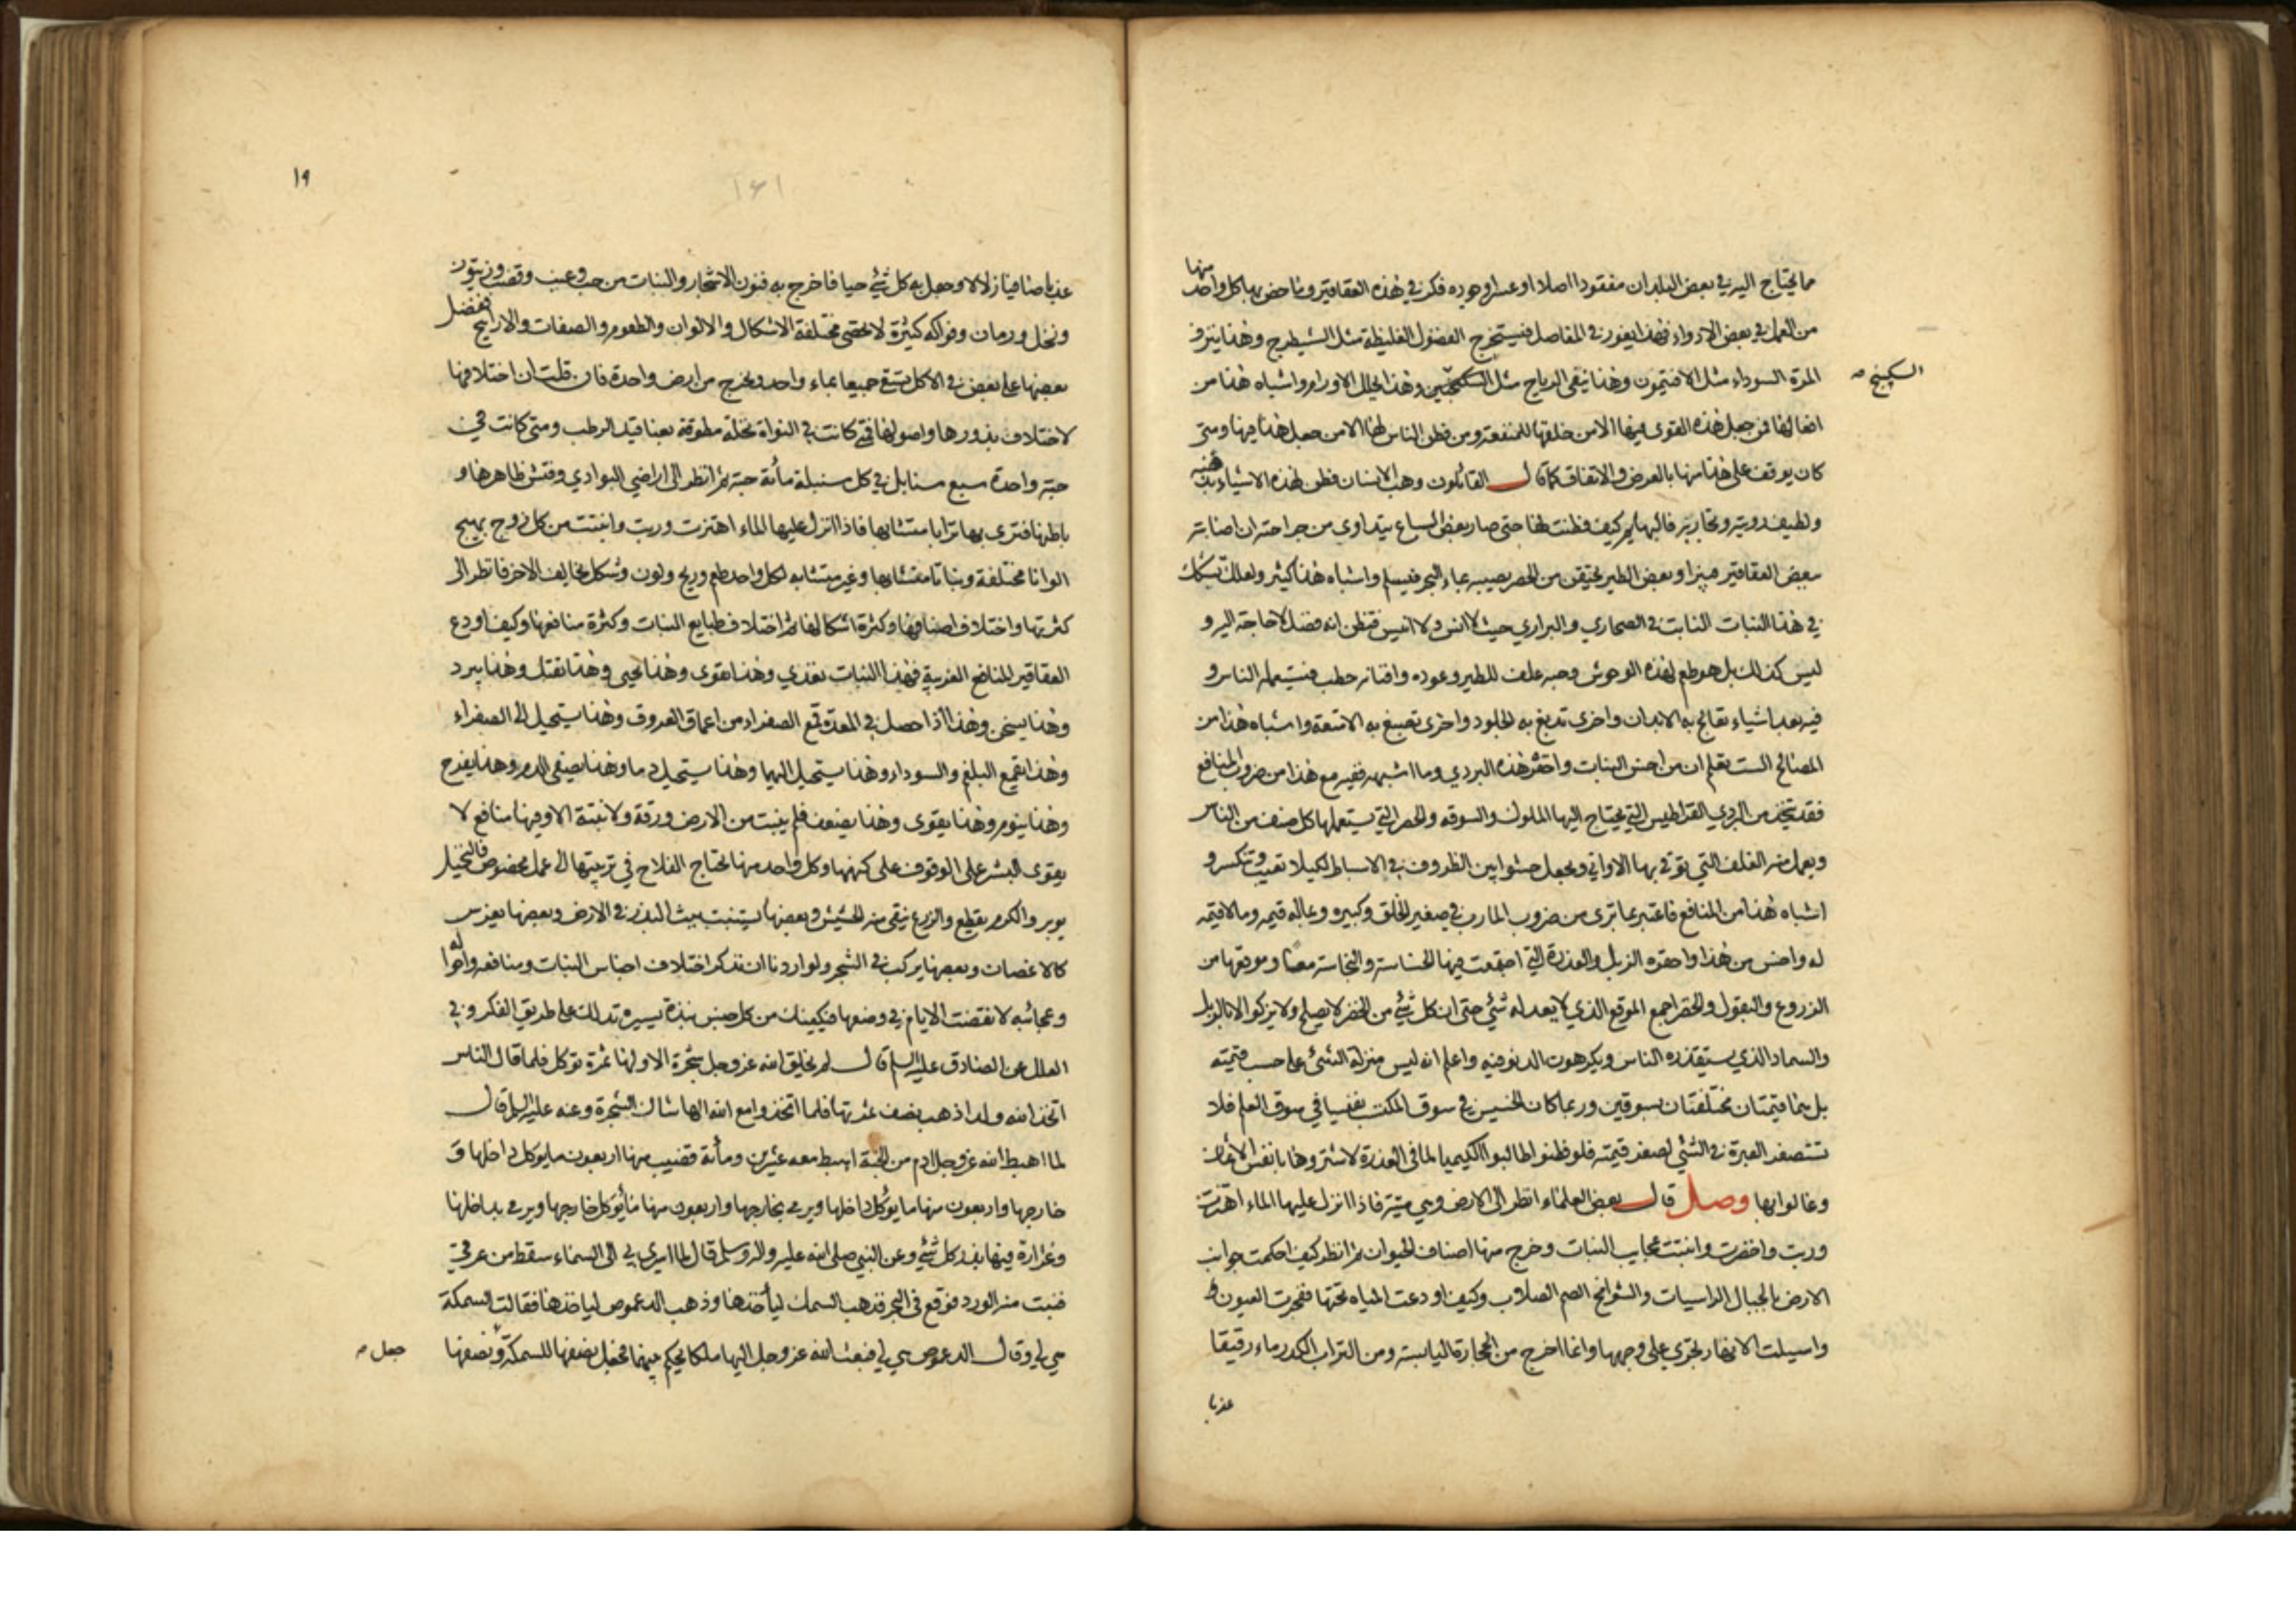 مما يحتاج اليه في بعض البلدان مفقودا اصلا او عسرا وجوده فكر في هذه العقاقير وما خص بها كل واحد منها
من العمل في بعض الادواء فهذا يغور في المفاصل فيستخرج الفضول الغليظة مثل الشيطرج وهذا ينزف
المرة السوداء مثل الافتيمون وهذا ينفي الرياح مثل السكبينج وهذا يحلل الاورام واشباه هذا من
السكبينج
افعالها فمن جعل هذه القوى فيها الا من خلقها للمنفعة ومن فطن الناس لها الا من جعل هذا فيها ومتى
كان يوقف على هذا منها بالعرض والاتفاق كما قال القائلون وهب الانسان فطن لهذه الاشياء بذهنه
ولطيف رويته وتجاربه فالبهايم كيف فطنت لها حتى صار بعض السباع يتداوى من جراحة ان اصابته
ببعض العقاقير فيبرا وبعض الطير يحتقن من الحصر يصيبه بماء البحر فيسلم واشباه هذا كثير ولعلك تشكك
في هذا النبات النابت في الصحاري والبراري حيث لا انس ولا انيس فتظن انه فضل لا حاجة اليه و
ليس كذلك بل هو طعم لهذه الوحوش وحبه علف للطير وعوده وافنانه حطب فيستعمله الناس و
فيه بعد اشياء تعالج به الابدان واخرى تدبغ به الجلود واخرى تصبغ به الامتعة واشباه هذا من
المصالح الست تعلم ان من اخس النبات واحقره هذه البردي وما اشبهه ففيه مع هذا من ضروب المنافع
فقد يتخذ من البردي القراطيس التي يحتاج اليها الملوك والسوقه والحصر التي يستعملها كل صنف من الناس
ويعمل منه الغلف التي توقى بها الاواني ويجعل حشوا بين الظروف في الاسباط لكيلا تعيب وتنكسر و
اشباه هذا من المنافع فاعتبر بما ترى من ضروب المآرب في صغير الخلق وكبيره وبما له قيمه وما لا قيمه
له واخس من هذا واحقره الزبل والعذرة التي اجتمعت فيها الخساسة والنجاسة معا وموقعها من
الزروع والبقول والخضر اجمع الموقع الذي لا يعدله شئ حتى ان كل شئ من الخضر لا يصلح ولا يزكو الا بالزبل
والسماد الذي يستقذره الناس ويكرهون الدنو منه واعلم انه ليس منزلة الشئ على حسب قيمته
بل هما قيمتان مختلفتان بسوقين وربما كان الخسيس في سوق المكتسب نفيسا في سوق العلم فلا
تستصغر العبرة في الشئ لصغر قيمته فلو فطنوا طالبوا الكيميا لما في العذرة لاشتروها بانفس الاثمان
وغالوا بها وصل قال بعض العلماء انظر الى الارض وهي ميتة فاذا انزل عليها الماء اهتزت
وربت واخضرت وانبتت عجايب النبات وخرج منها اصناف الحيوان ثم انظر كيف احكمت جوانب
الارض بالجبال الراسيات والشوامخ الصم الصلاب وكيف اودعت المياه تحتها ففجرت العيون
واسيلت الانهار تجري على وجهها وانما اخرج من الحجارة اليابسة ومن التراب الكدر ماء رقيقا
عذبا
١٩
١٤١
عذبا صافيا زلالا وجعل به كل شئ حيا فاخرج به فنون الاشجار والنبات من حب وعنب وقضب وزيتون
ونخل ورمان وفواكه كثيرة لا تحصى مختلفة الاشكال والالوان والطعوم والصفات والاراييح يفضل
بعضها على بعض في الاكل تسقى جميعا بماء واحد ويخرج من ارض واحدة فان قلت ان اختلافها
لاختلاف بذورها واصولها فمتى كانت في النواة نخلة مطوقة بعناقيد الرطب ومتى كانت في
حبة واحدة سبع سنابل في كل سنبلة مأة حبة ثم انظر الى اراضي البوادي وفتش ظاهرها و
باطنها فترى بها ترابا متشابها فاذا انزل عليها الماء اهتزت وربت وانبتت من كل زوج بهيج
الوانا مختلفة ونباتا متشابها وغير متشابه لكل واحد طعم وريح ولون وشكل يخالف الاخر فانظر الى
كثرتها واختلاف اصنافها وكثرة اشكالها ثم اختلاف طبايع النبات وكثرة منافعها وكيف اودع
العقاقير المنافع الغريبة فهذا النبات يغذي وهذا يقوى وهذا يحيى وهذا يقتل وهذا يبرد
وهذا يسخن وهذا اذا حصل في المعدة قمع الصفراء من اعماق العروق وهذا يستحيل الى الصفراء
وهذا يقمع البلغم والسوداء وهذا يستحيل اليهما وهذا يستحيل دما وهذا يصفى الدم وهذا يفرح
وهذا ينوم وهذا يقوى وهذا يضعف فلم ينبت من الارض ورقة ولا نبتة الا وفيها منافع لا
يقوى البشر على الوقوف على كنهها وكل واحد منها يحتاج الفلاح في تربيتها الى عمل مخصوص فالنخيل
يوبر والكرم يقطع والزرع ينقى منه الحشيش وبعضها يستنبت ببث البذر في الارض وبعضها يغرس
كالاغصان وبعضها يركب في الشجر ولو اردنا ان نذكر اختلاف اجناس النبات ومنافعه واحواله
وعجائبه لانقضت الايام في وصفها فيكفينك من كل جنس نبذة يسيره تدلك على طريق الفكر وفي
العلل عن الصادق عليه السلام قال لم يخلق الله عز وجل شجرة الا ولها ثمرة توكل فلما قال الناس
اتخذ الله ولدا ذهب نصف ثمرتها فلما اتخذوا مع الله الها شاك الشجرة وعنه عليه السلام قال
لما اهبط الله عز وجل آدم من الجنة اهبط معه عشرين ومأة قضيب منها اربعون ما يوكل داخلها و
خارجها واربعون منها ما يؤكل داخلها ويرمى بخارجها واربعون منها ما يؤكل خارجها ويرمى بداخلها
وغرارة فيها بذر كل شئ وعن النبي صلى الله عليه واله وسلم قال لما اسري بي الى السماء سقط من عرقي
فنبت منه الورد فوقع في البحر فذهب السمك ليأخذها وذهب الدعموص لياخذها فقالت السمكة
هي لي وقال الدعموص هي لي فبعث الله عز وجل اليهما ملكا يحكم بينهما فجعل نصفها للسمكة ونصفها
جعل